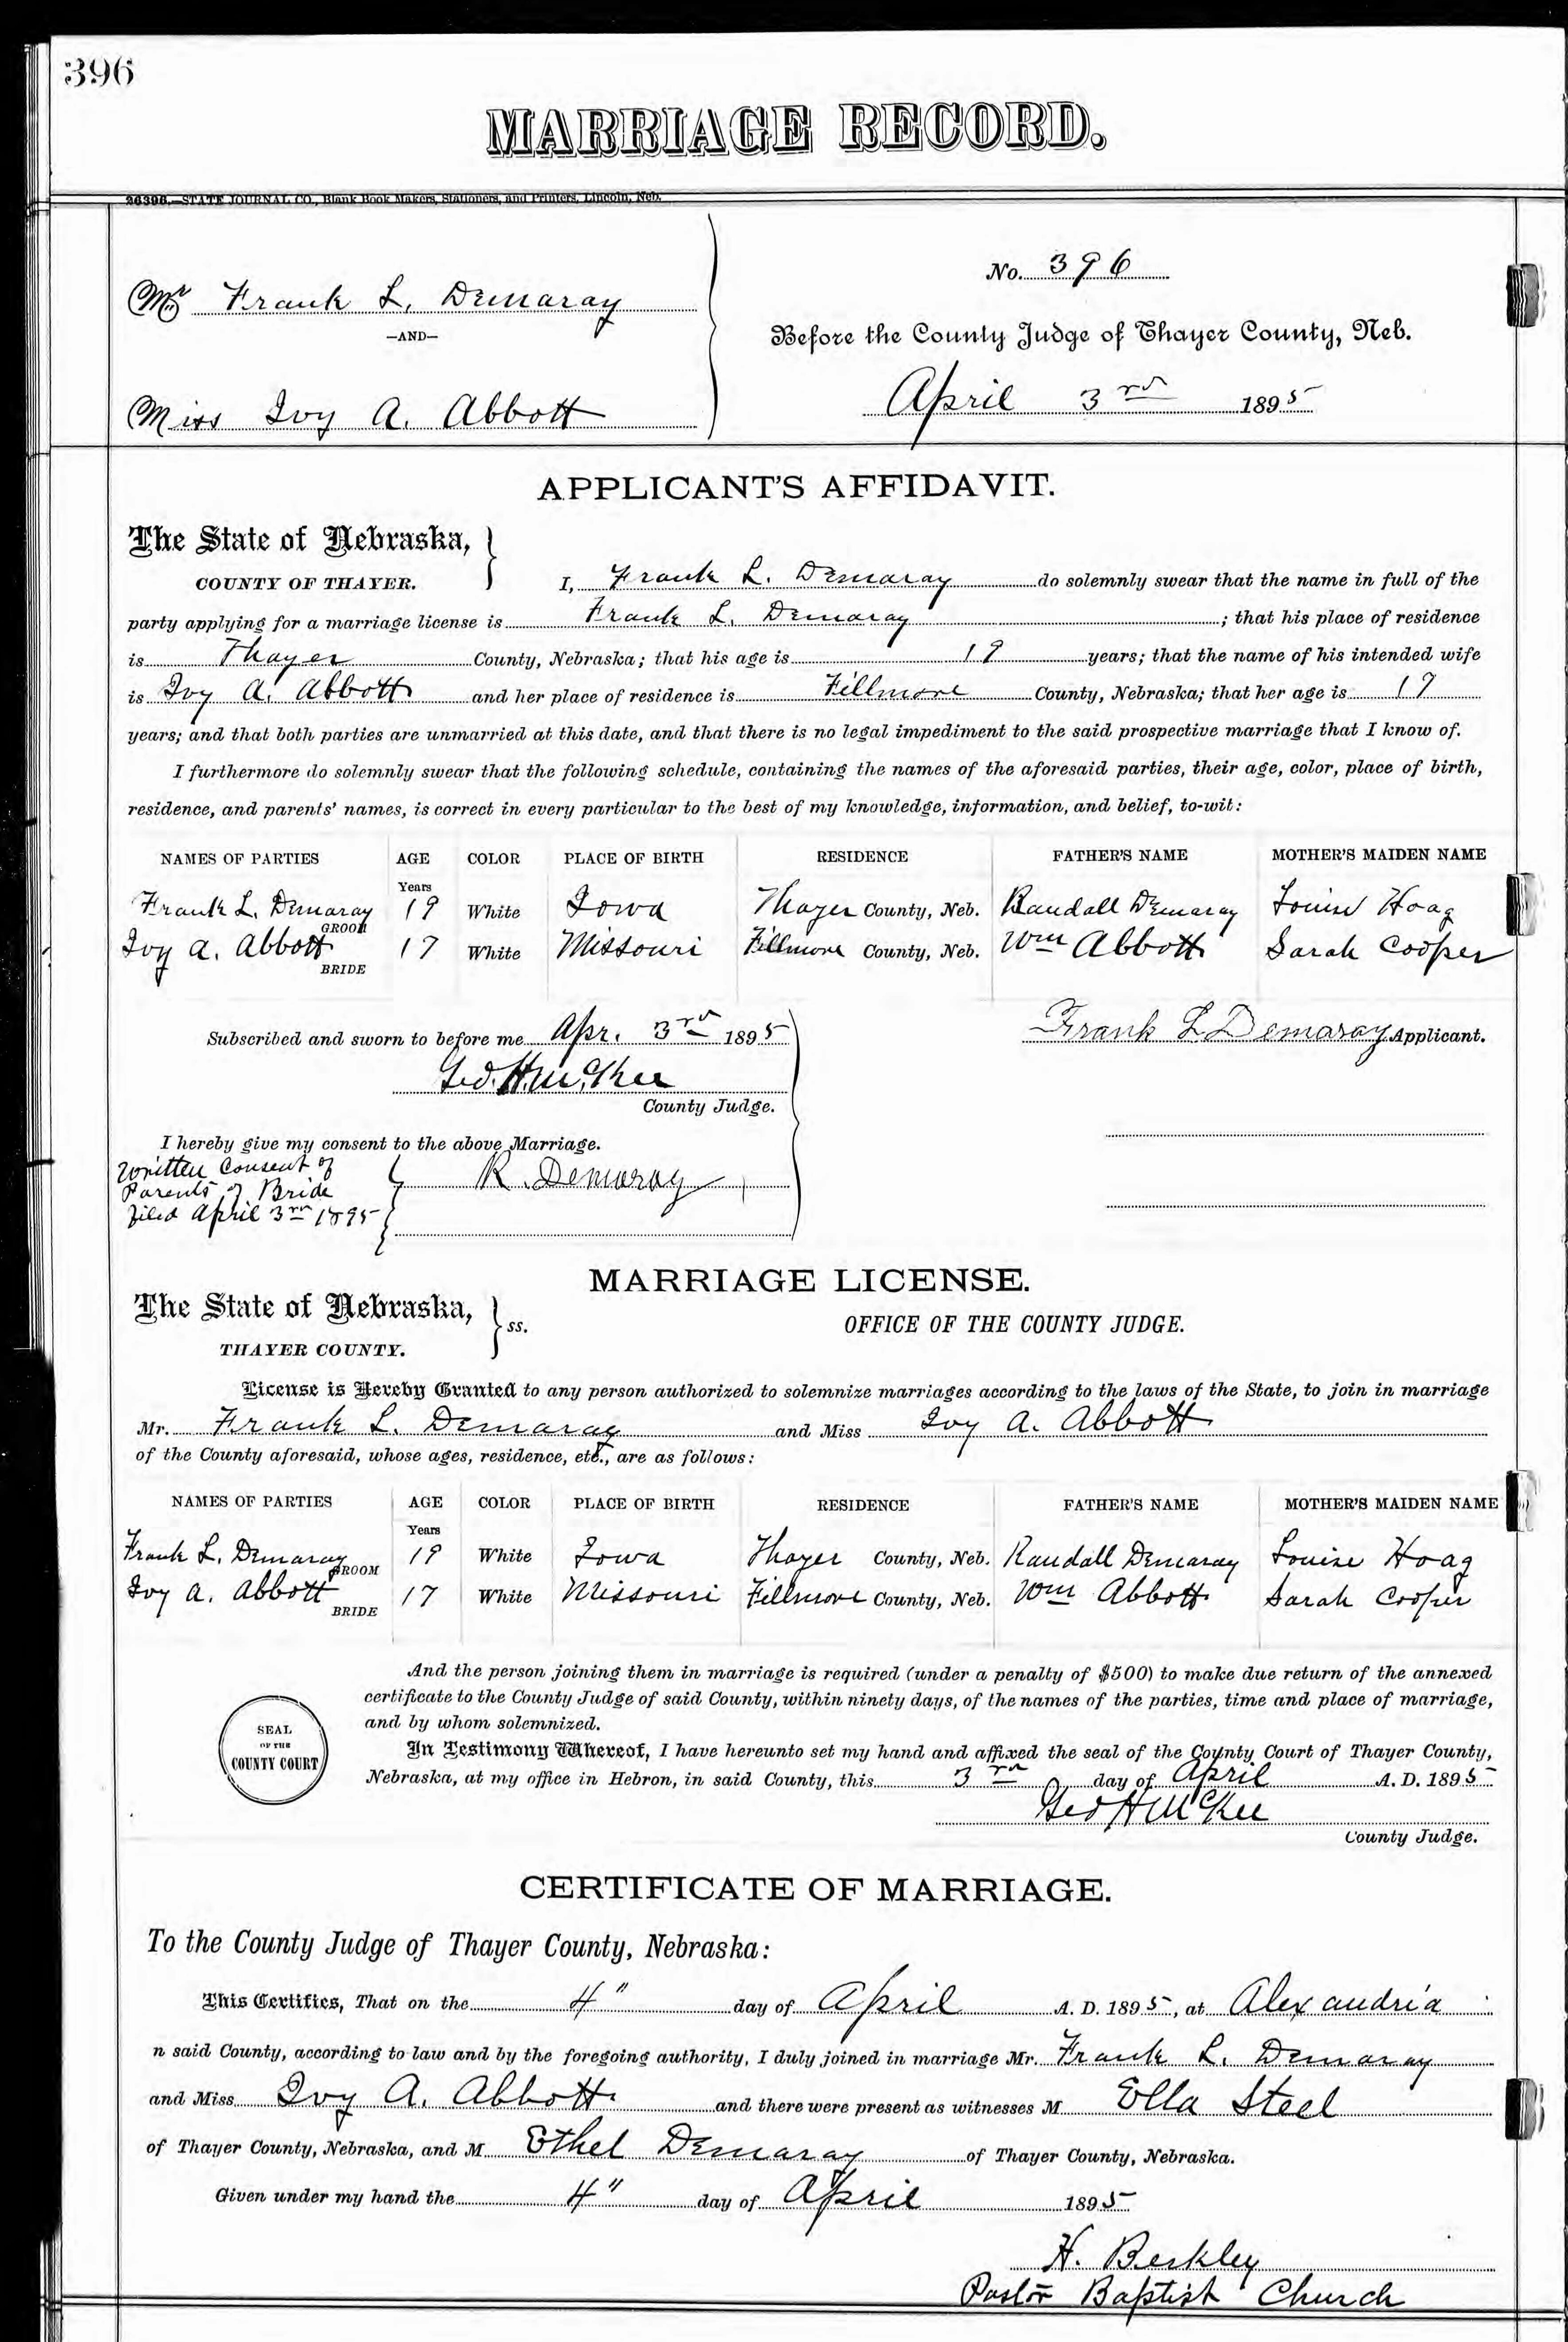 396
MARRIAGE RECORD.
26396.—STATE JOURNAL CO., Blank Book Makers, Stationers, and Printers, Lincoln, Neb.
Mr Frank L. Demaray
—AND—
Miss Ivy A. Abbott
No. 396
Before the County Judge of Thayer County, Neb.
April 3rd 1895
APPLICANT'S AFFIDAVIT.
The State of Nebraska,
COUNTY OF THAYER.
I, Frank L. Demaray do solemnly swear that the name in full of the
party applying for a marriage license is Frank L. Demaray ; that his place of residence
is Thayer County, Nebraska; that his age is 19 years; that the name of his intended wife
is Ivy A. Abbott and her place of residence is Fillmore County, Nebraska; that her age is 17
years; and that both parties are unmarried at this date, and that there is no legal impediment to the said prospective marriage that I know of.
I furthermore do solemnly swear that the following schedule, containing the names of the aforesaid parties, their age, color, place of birth,
residence, and parents' names, is correct in every particular to the best of my knowledge, information, and belief, to-wit:
NAMES OF PARTIES AGE COLOR PLACE OF BIRTH RESIDENCE FATHER'S NAME MOTHER'S MAIDEN NAME
Years
Frank L. Demaray GROOM 19 White Iowa Thayer County, Neb. Randall Demaray Louise Hoag
Ivy A. Abbott BRIDE 17 White Missouri Fillmore County, Neb. Wm Abbott Sarah Cooper
Subscribed and sworn to before me Apr. 3rd 1895
Frank L Demaray Applicant.
Geo. H. McKee
County Judge.
I hereby give my consent to the above Marriage.
Written Consent of
Parents of Bride
filed April 3rd 1895
R. Demaray
MARRIAGE LICENSE.
The State of Nebraska,
THAYER COUNTY.
ss.
OFFICE OF THE COUNTY JUDGE.
License is Hereby Granted to any person authorized to solemnize marriages according to the laws of the State, to join in marriage
Mr. Frank L. Demaray and Miss Ivy A. Abbott
of the County aforesaid, whose ages, residence, etc., are as follows:
NAMES OF PARTIES AGE COLOR PLACE OF BIRTH RESIDENCE FATHER'S NAME MOTHER'S MAIDEN NAME
Years
Frank L. Demaray GROOM 19 White Iowa Thayer County, Neb. Randall Demaray Louise Hoag
Ivy A. Abbott BRIDE 17 White Missouri Fillmore County, Neb. Wm Abbott Sarah Cooper
And the person joining them in marriage is required (under a penalty of $500) to make due return of the annexed
certificate to the County Judge of said County, within ninety days, of the names of the parties, time and place of marriage,
and by whom solemnized.
SEAL
OF THE
COUNTY COURT
In Testimony Whereof, I have hereunto set my hand and affixed the seal of the County Court of Thayer County,
Nebraska, at my office in Hebron, in said County, this 3rd day of April A. D. 1895
Geo H McKee
County Judge.
CERTIFICATE OF MARRIAGE.
To the County Judge of Thayer County, Nebraska:
This Certifies, That on the 4" day of April A. D. 1895, at Alexandria
n said County, according to law and by the foregoing authority, I duly joined in marriage Mr. Frank L. Demaray
and Miss Ivy A. Abbott and there were present as witnesses M Ella Steel
of Thayer County, Nebraska, and M Ethel Demaray of Thayer County, Nebraska.
Given under my hand the 4" day of April 1895
H. Berkley
Pastor Baptist Church